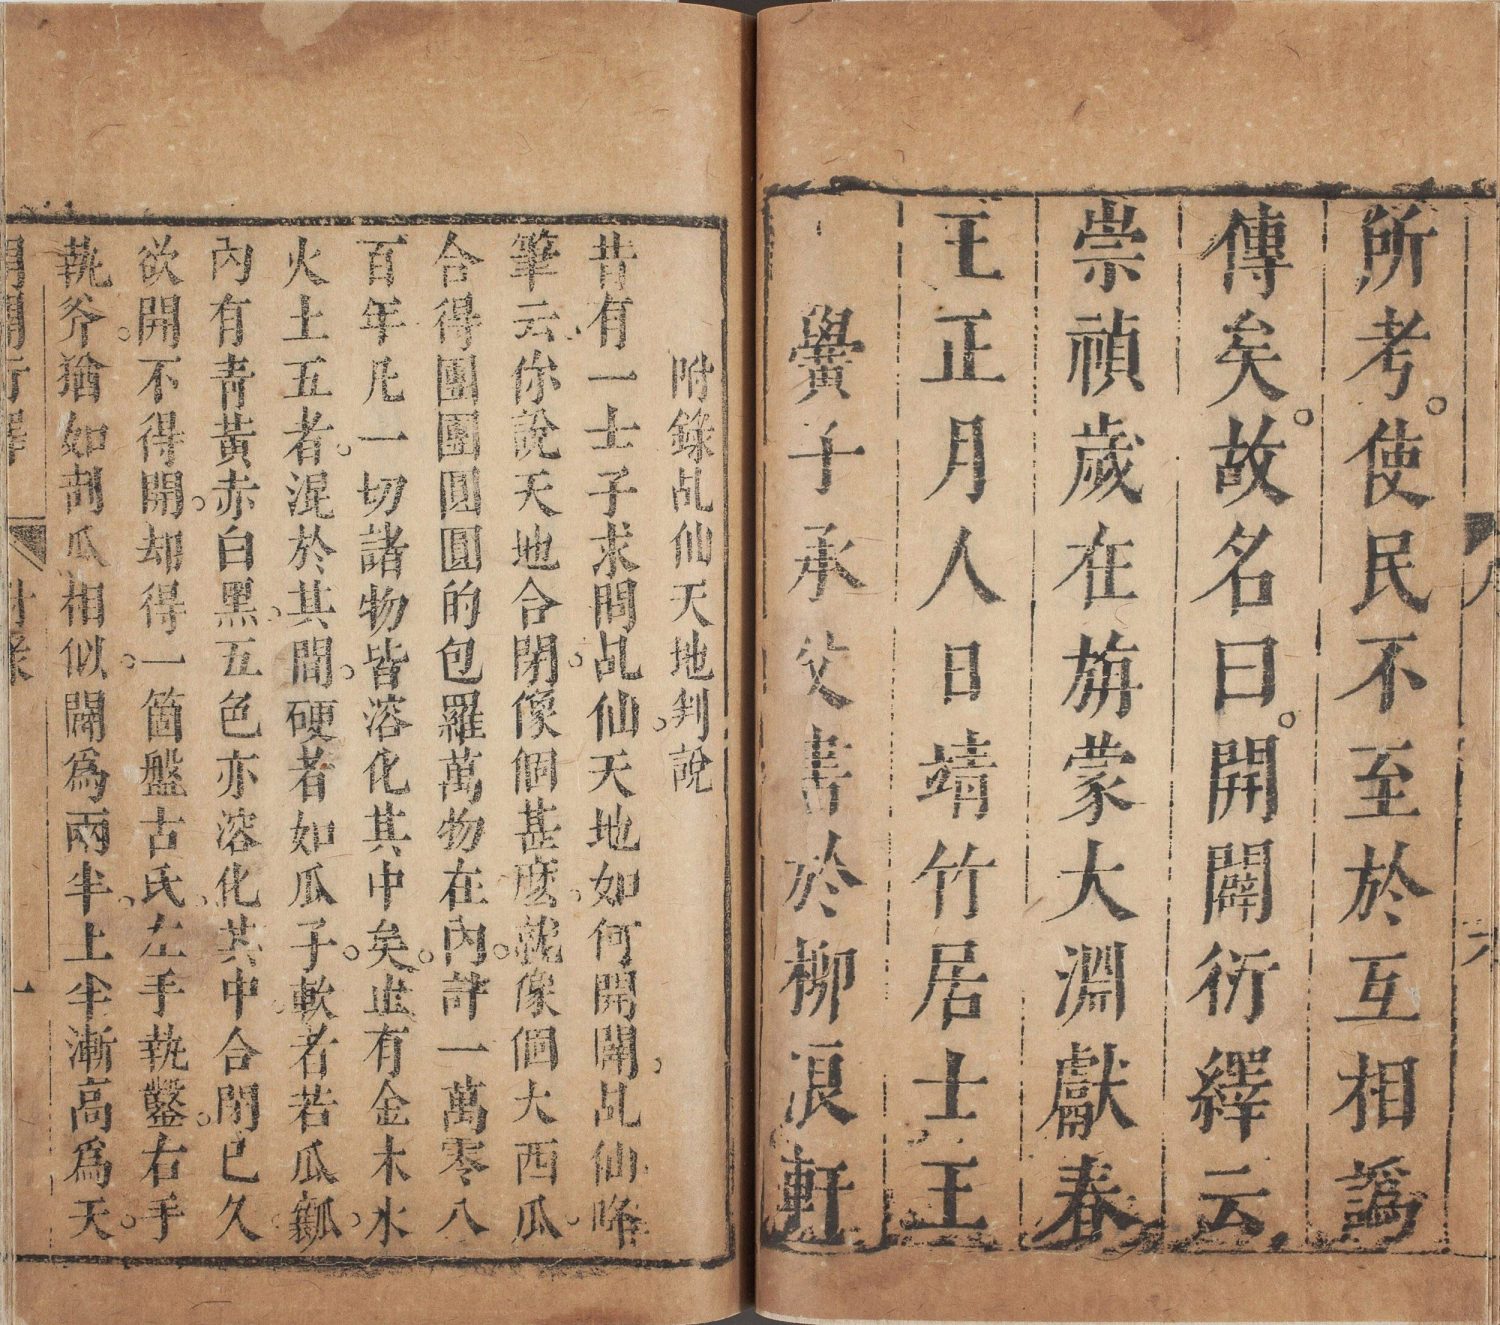 所考使民不至於互相譌
傳矣故名曰開闢衍繹云
崇禎歲在旃蒙大淵獻春
王正月人日靖竹居士王
黌子承父書於柳浪軒
附錄乩仙天地判說
昔有一士子求問乩仙天地如何開闢乩仙咯
筆云你說天地合閉像個甚麽就像個大西瓜
合得團團圓圓的包羅萬物在內計一萬零八
百年凡一切諸物皆溶化其中矣止有金木水
火土五者混於其間硬者如瓜子軟者若瓜瓤
內有青黃赤白黑五色亦溶化其中合閉已久
欲開不得開却得一箇盤古氏左手執鑿右手
執斧猶如剖瓜相似闢爲兩半上半漸高爲天